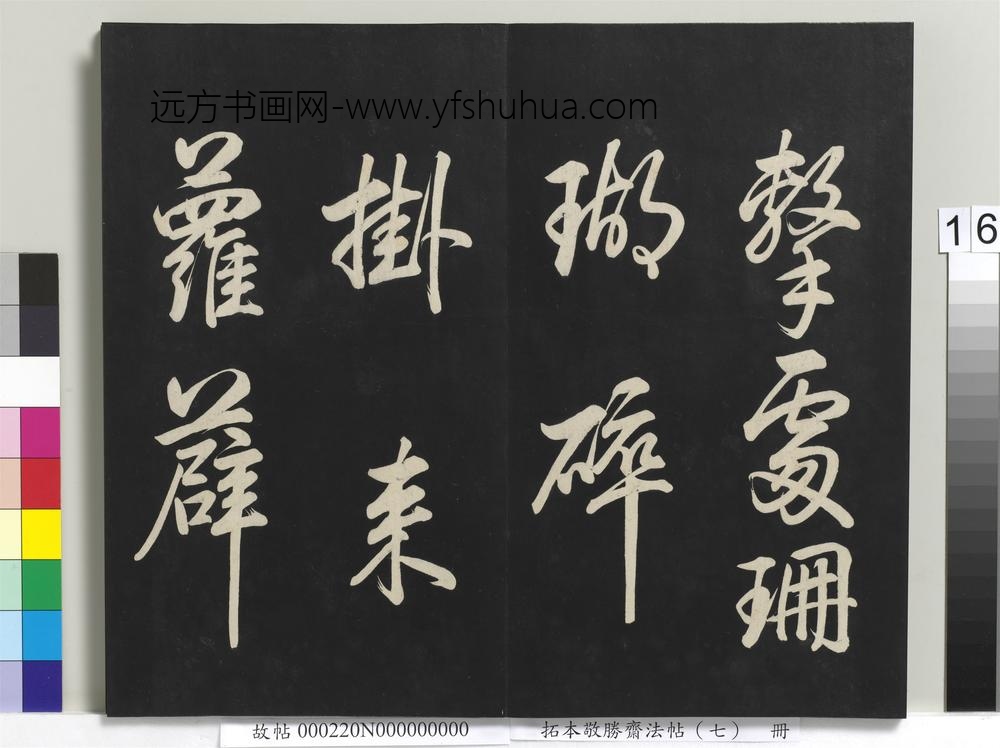 远方书画网-www.yfshuhua.com
擊處珊
瑚碎
掛来
蘿薜
16
故帖 000220N000000000
拓本敬勝齋法帖（七） 冊